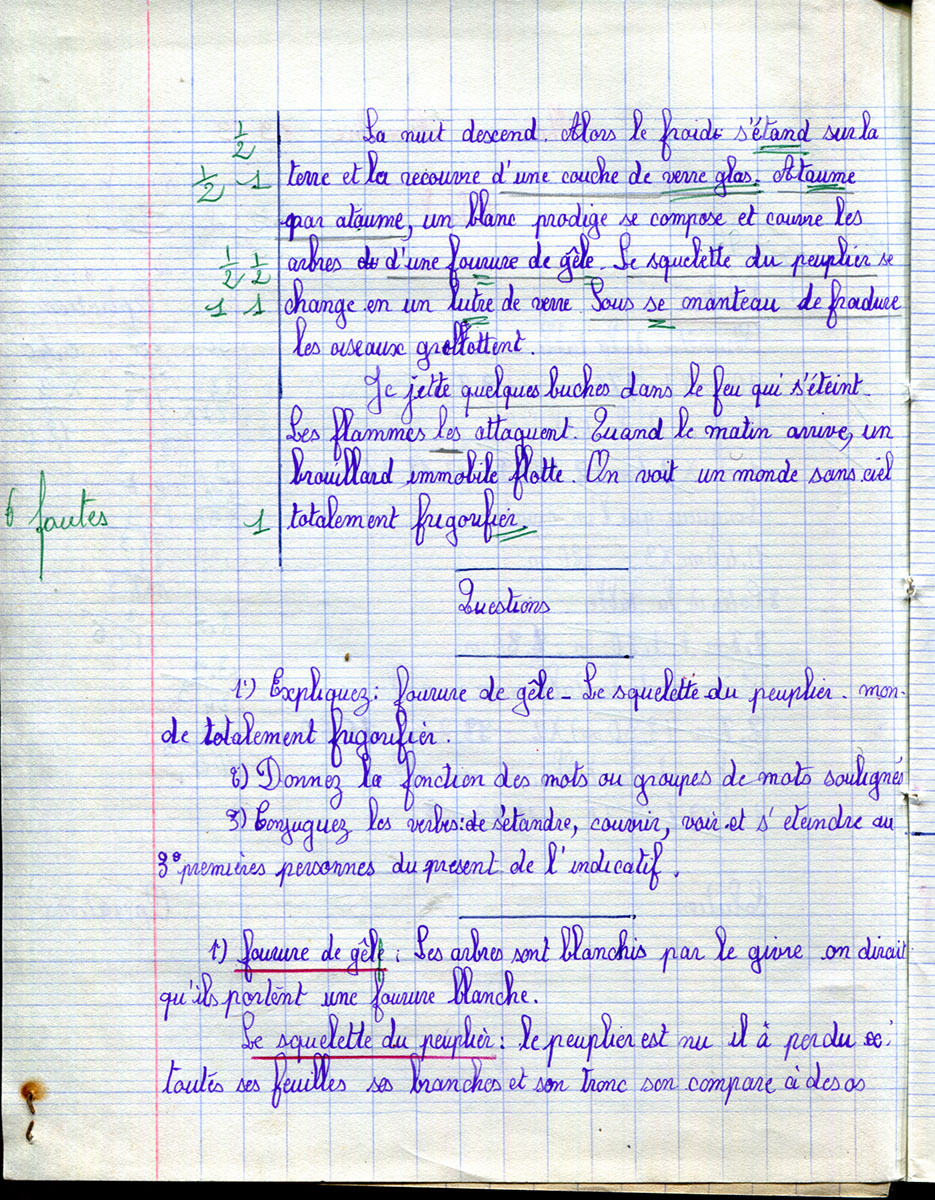 1/2 La nuit descend. Alors le froids s'étand sur la
1/2 1 terre et la recouvre d'une couche de verre glas. Ataume
par ataume, un blanc prodige se compose et couvre les
1/2 1/2 arbres de d'une fourure de gêle. Le squelette du peuplier se
1 1 change en un lutre de verre Sous se manteau de froidure
les oiseaux grelottent.
Je jette quelques buches dans le feu qui s'éteint.
Les flammes les attaquent. Quand le matin arrive, un
brouillard immobile flotte. On voit un monde sans ciel
6 fautes 1 totalement frigorifier.
Questions
1°) Expliquez: fourure de gêle - Le squelette du peuplier - mon-
de totalement frigorifier.
2) Donnez la fonction des mots ou groupes de mots soulignés
3) Conjuguez les verbes: de s'étandre, couvrir, voir et s'eteindre au
3° premières personnes du present de l'indicatif.
1) fourure de gêle : Les arbres sont blanchis par le givre on dirait
qu'ils portent une fourure blanche.
Le squelette du peuplier : le peuplier est nu il à perdu
toutes ses feuilles ses branches et son tronc son compare à des os